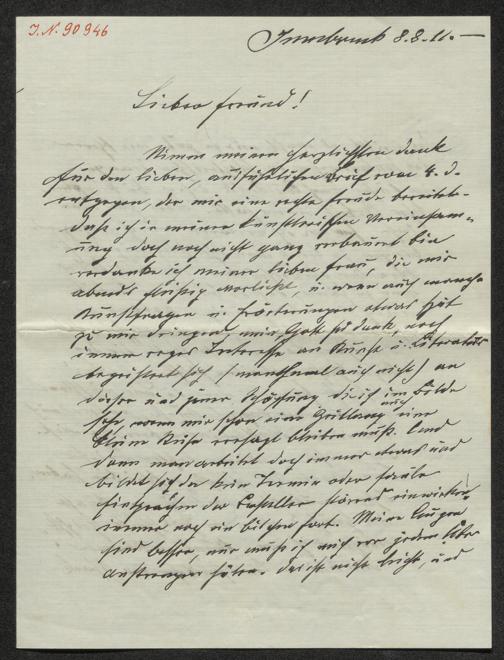 J. N. 90946
Innsbruck 8.8.11. —
Lieber Freund!
Nimm meinen herzlichsten Dank
für den lieben, ausführlichen Brief vom 4. d.
entgegen, der mir eine rechte Freude bereitet.
Daß ich in meiner künstlerischen Vereinsam-
ung doch noch nicht ganz verbauert bin
verdanke ich meiner lieben Frau, die mir
abends fleißig vorliest, u. wenn auch manche
Kunstfragen u. Erörterungen etwas spät
zu mir dringen, mein Gott sei dank, noch
immer reges Interesse an Kunst u. Literatur
begeistert sich (manchmal auch nicht) an
dieser und jener Schöpfung die ich im Bilde
sehe, wenn mir schon eine auch nur
kleine Reise versagt bleiben muß. Und
dann man arbeitet doch immer etwas und
bildet sich da kein Termin oder
der Besteller störend einwirken,
immer noch ein bischen fort. Meine Augen
sind besser, nur muß ich mich vor jedem Über-
anstrengen hüten. Das ist nicht leicht, und